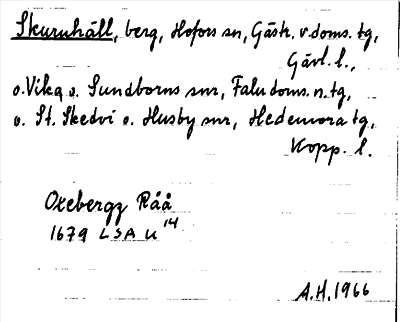 Skuruhäll, berg, Hofors sn, Gästr. v. doms. tg,
Gävl. l.,
o. Vika o. Sundborns snr, Falu doms. n. tg,
o. St. Skedvi o. Husby snr, Hedemora tg,
Kopp. l.
Oxebergz Råå
1679 LSA U 14
A.H. 1966